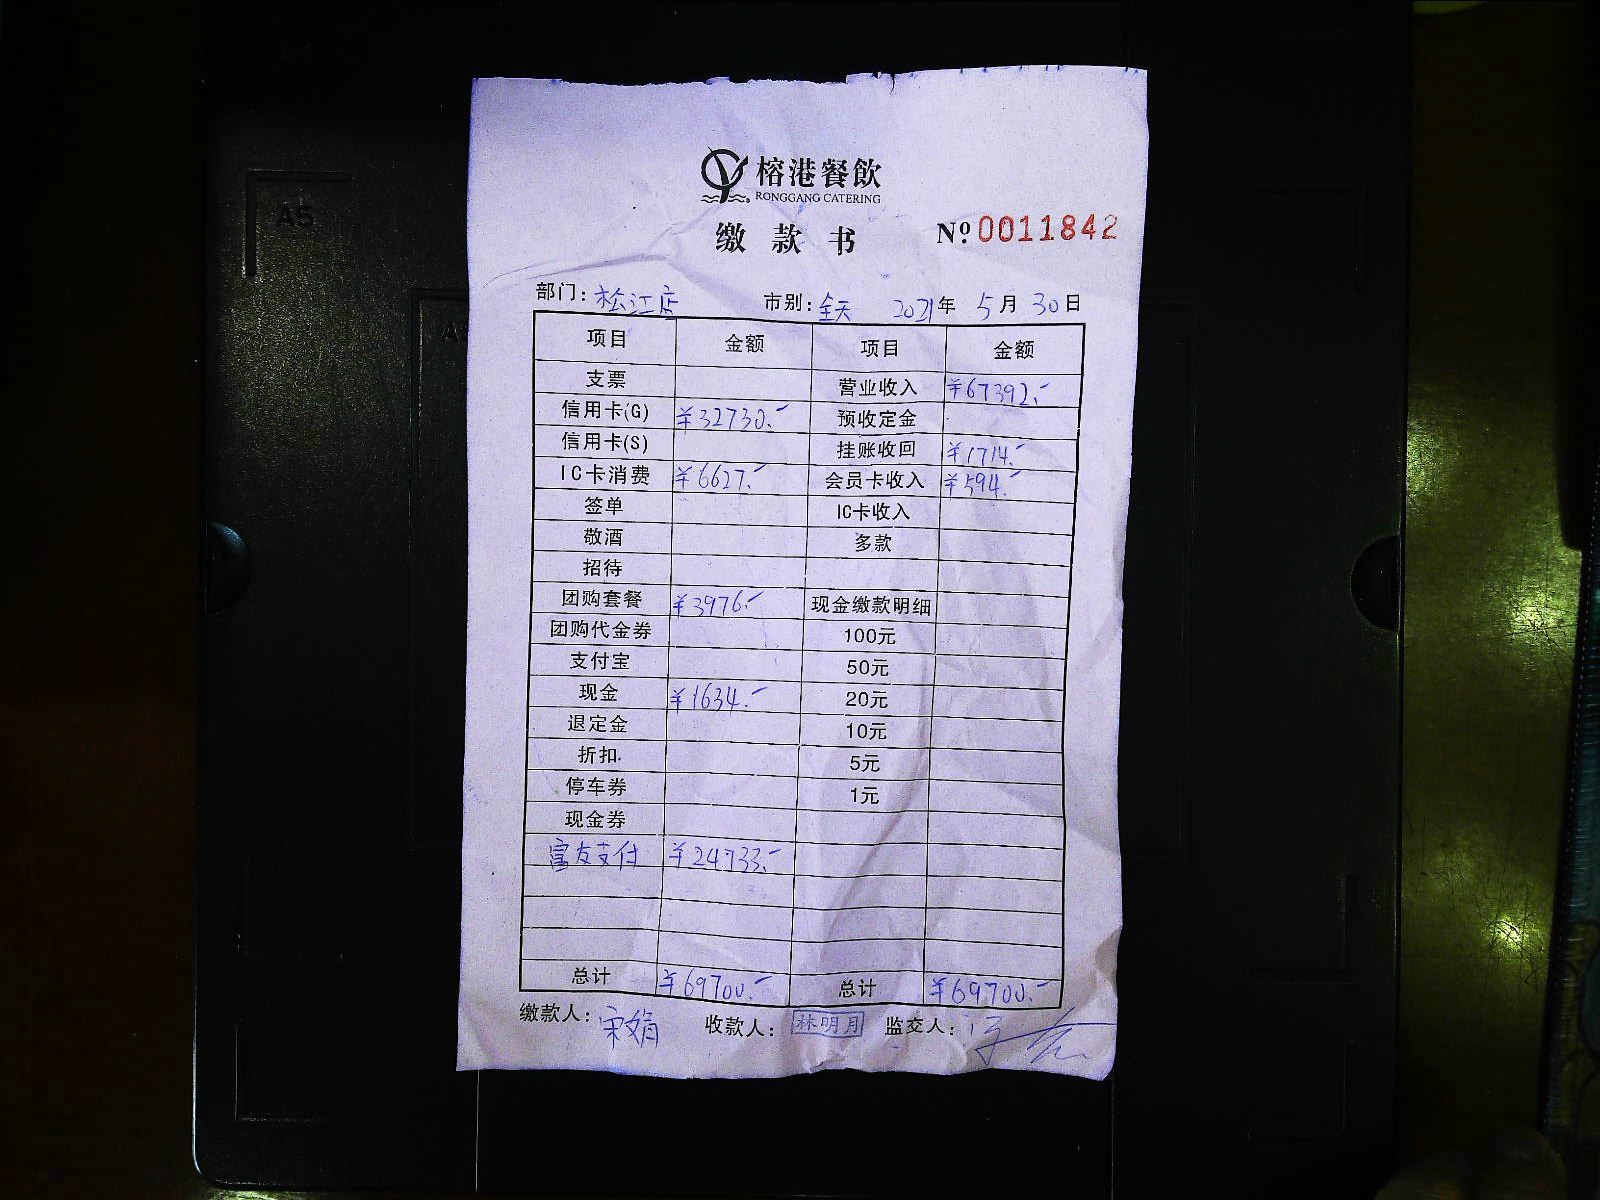 榕港餐飲
RONGGANG CATERING
缴款书 Nº 0011842
部门：松江店 市别：全天 2021年 5月 30日
项目 金额 项目 金额
支票 营业收入 ¥67392.-
信用卡(G) ¥32730.- 预收定金
信用卡(S) 挂账收回 ¥1714.-
IC卡消费 ¥6627.- 会员卡收入 ¥594.-
签单 IC卡收入
敬酒 多款
招待
团购套餐 ¥3976.- 现金缴款明细
团购代金券 100元
支付宝 50元
现金 ¥1634.- 20元
退定金 10元
折扣 5元
停车券 1元
现金券
富友支付 ¥24733.-
总计 ¥69700.- 总计 ¥69700.-
缴款人：宋娟 收款人：林明月 监交人：
A5